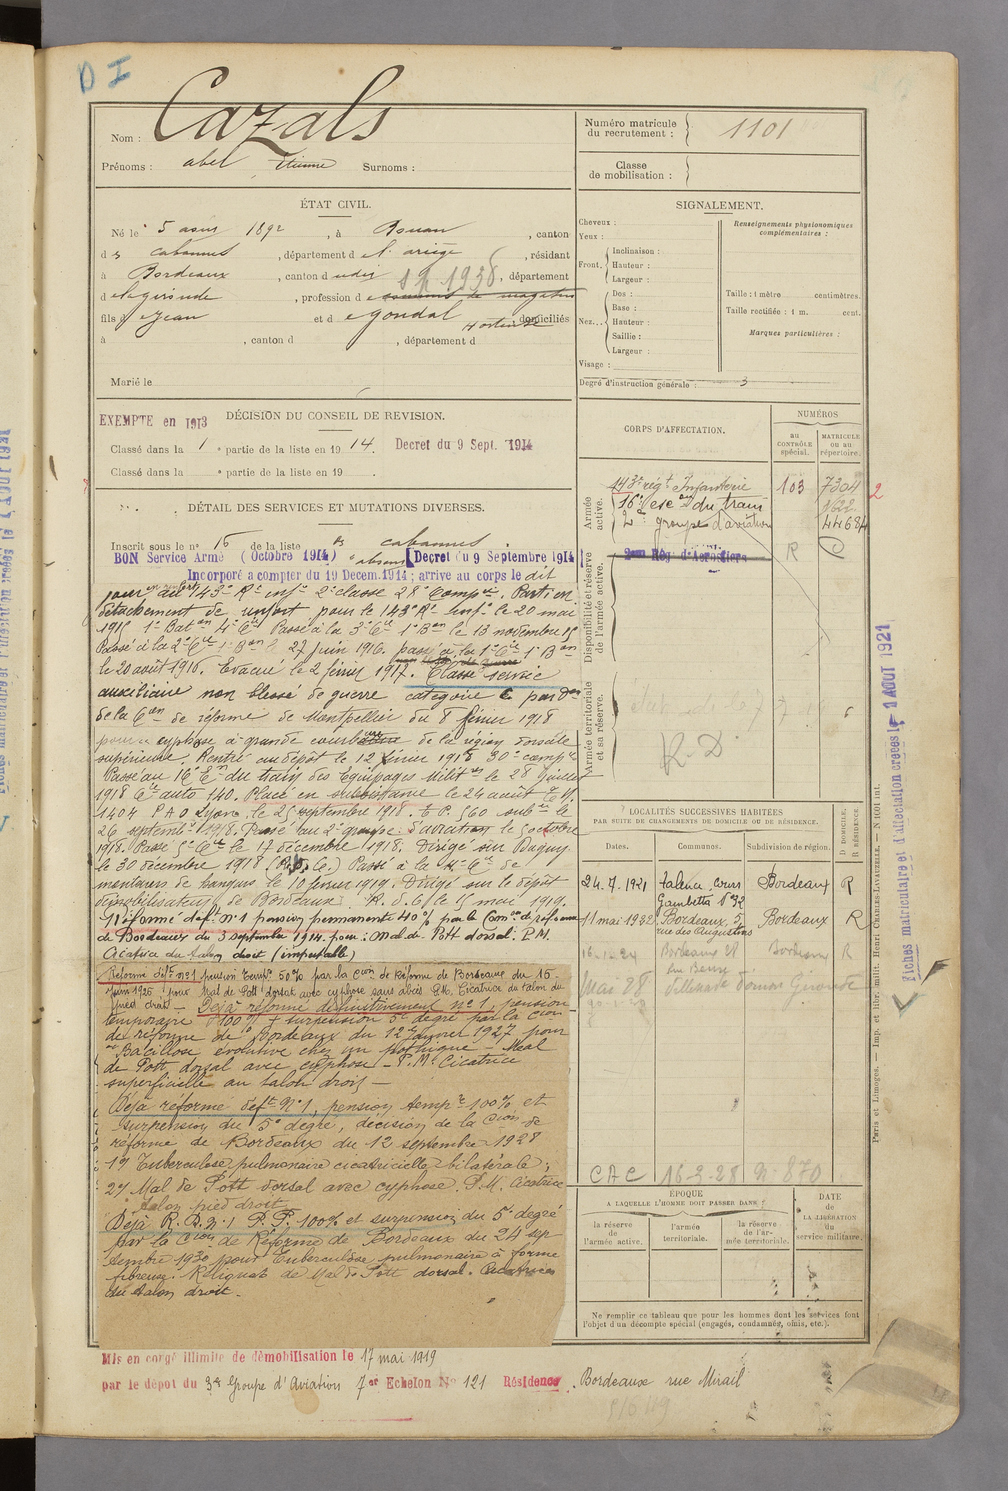 D I
Nom : Cazals
Prénoms : abel Etienne Surnoms :
ÉTAT CIVIL.
Né le 5 1892, à , canton
d es cabannes, département d e l'ariège, résidant
à Bordeaux, canton d udit, département
d e la gironde, profession d e de magasin
fils d e Jean et d e Gondal Hortense domiciliés
à , canton d , département d
Marié le
EXEMPTE en 1913
DÉCISION DU CONSEIL DE REVISION.
Classé dans la 1 e partie de la liste en 19 14. Decret du 9 Sept. 1914
Classé dans la e partie de la liste en 19
DÉTAIL DES SERVICES ET MUTATIONS DIVERSES.
Inscrit sous le n° 16 de la liste des cabannes
BON Service Armé (Octobre 1914) absent (Decret du 9 Septembre 1914
Incorporé a compter du 19 Decem. 1914 ; arrive au corps le dit
jour au 143e Rt infie 2e classe 28e Compie. Parti en
détachement de renfort pour le 143e Rt infie le 20 mai
1915 1er Baton 4e Cie Passé à la 3e Cie 1er Bon le 13 novembre 15
Passé à la 2e Cie 1er Bon 27 juin 1916. passé à la 1e Cie 1er Bon
le 20 août 1916. Evacué le 2 février 1917. Classé service
auxiliaire non blessé de guerre catégorie par don
de la Con de réforme de Montpellier du 8 février 1918
pour cyphose à grande courbure de la région dorsale
supérieure. Rentré au dépôt le 12 février 1918 30e compie
Passé au 16e Eon du train des Equipages milit es le 28 Juillet
1918 Cie auto 140. Placé en subsistance le 24 août T.M.
1404 P A O Lyon, le 25 septembre 1918. E P. 560 le
26 septembre 1918. Passé au 2e groupe d'aviation le 5 octobre
1918. Passé 5e Cie le 17 décembre 1918. Dirigé sur Buguy
le 30 décembre 1918 Passé à la 4e Cie de
monteurs de hangars le 10 février 1919. Dirigé sur le dépôt
démobilisateur de Bordeaux. R. d. 6/ 15 mai 1919.
Réformé deft n° 1 pension permanente 40% par la Comon de réforme
de Bordeaux du 3 septembre 1914 pour : mal de Pott dorsal. P.M.
Cicatrice du talon droit (imputable)
Réformé déft n° 1 pension temp. 50% par la Cion de Réforme de Bordeaux du 15
juin 1925 pour Mal de Pott dorsal avec cyphose sans abcès P.M. Cicatrice du talon du
pied droit — Déjà réformé définitivement n° 1, pension
temporaire 100% + surpension 5e degré par la Cion
de réforme de Bordeaux du 12 janvier 1927 pour
Bacillose évolutive chez un pottique — Mal
de Pott dorsal avec cyphose — P.M. Cicatrice
superficielle au talon droit —
Déjà réformé deft N° 1, pension tempre 100% et
surpension du 5e degré, décision de la Cion de
réforme de Bordeaux du 12 septembre 1928
1°/ Tuberculose pulmonaire cicatricielle bilatérale ;
2°/ Mal de Pott dorsal avec cyphose. P.M. Cicatrice
talon pied droit
Déjà R. D. n° 1 P. P. 100% et surpension du 5e degré
par la Cion de Réforme de Bordeaux du 24 sep
tembre 1930 pour Tuberculose pulmonaire à forme
fibreuse. Reliquat de Mal de Pott dorsal. Cicatrices
du talon droit.
Mis en congé illimité de démobilisation le 17 mai 1919
par le dépôt du 3e Groupe d'Aviation 7er Echelon N° 121 Résidence Bordeaux rue Mirail
Numéro matricule
du recrutement : 1101
Classe
de mobilisation :
SIGNALEMENT.
Cheveux :
Yeux :
Front. Inclinaison :
Hauteur :
Largeur :
Nez... Dos :
Base :
Hauteur :
Saillie :
Largeur :
Visage :
Renseignements physionomiques
complémentaires :
Taille : 1 mètre centimètres.
Taille rectifiée : 1 m. cent.
Marques particulières :
Degré d'instruction générale : 3
CORPS D'AFFECTATION.
NUMÉROS
AU CONTRÔLE spécial.
MATRICULE OU AU répertoire.
Armée active.
143e régt Infanterie 103 7304 2
16e esc on du train
2e groupe d'aviation 44684
Disponibilité et réserve de l'armée active.
2eme Rég d'Aerostiers R
Armée territoriale et sa réserve.
R.D.
LOCALITÉS SUCCESSIVES HABITÉES
PAR SUITE DE CHANGEMENTS DE DOMICILE OU DE RÉSIDENCE.
Dates. Communes. Subdivision de région. D DOMICILE, R RÉSIDENCE
24.7.1921 Talence, cours Gambetta n° 32 Bordeaux R
11 mai 1932 Bordeaux, 5 rue des Augustins Bordeaux R
Bordeaux 28 Bordeaux R
Mai 28 Gironde
C A C 16-3-28 n° 870
ÉPOQUE
A LAQUELLE L'HOMME DOIT PASSER DANS :
la réserve de l'armée active.
l'armée territoriale.
la réserve de l'armée territoriale.
DATE DE LA LIBÉRATION du service militaire.
Ne remplir ce tableau que pour les hommes dont les services font
l'objet d'un décompte spécial (engagés, condamnés, omis, etc.).
Paris et Limoges. — Imp. et libr. milit. Henri CHARLES-LAVAUZELLE. — N° 101 int.
Fiches matriculaire et d'affectation créées le 1 AOUT 1921